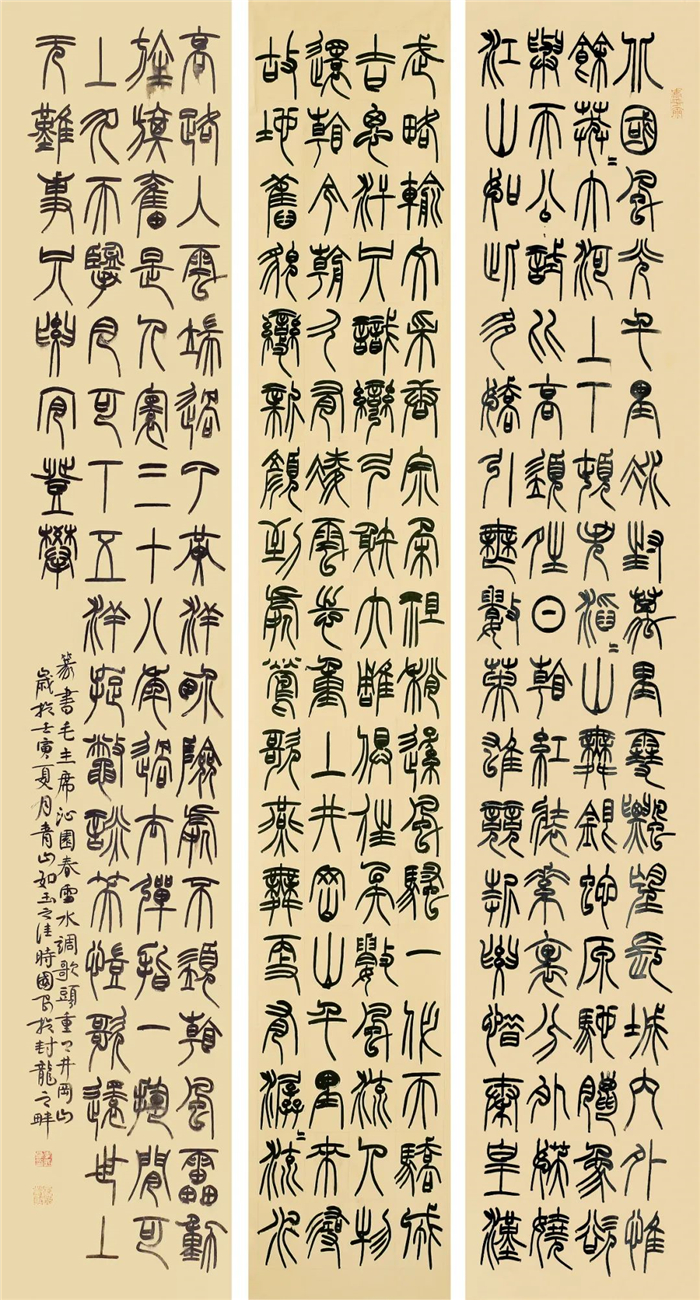 北國風光千里冰封萬里雪飄望長城內外惟
餘莽〻大河上下頓失滔〻山舞銀蛇原馳蠟象欲
與天公試比高須晴日看紅裝素裹分外妖嬈
江山如此多嬌引無數英雄競折腰惜秦皇漢
武略輸文采唐宗宋祖稍遜風騷一代天驕成
吉思汗只識彎弓射大雕俱往矣數風流人物
還看今朝久有凌雲志重上井岡山千里來尋
故地舊貌變新顏到處鶯歌燕舞更有潺〻流水
高路入雲端過了黃洋界險處不須看風雷動
旌旗奮是人寰三十八年過去彈指一揮間可
上九天攬月可下五洋捉鱉談笑凱歌還世上
无難事只要肯登攀
篆書毛主席沁園春雪水調歌頭重上井岡山
歲於壬寅夏月青山如玉之佳時國於封龍之畔